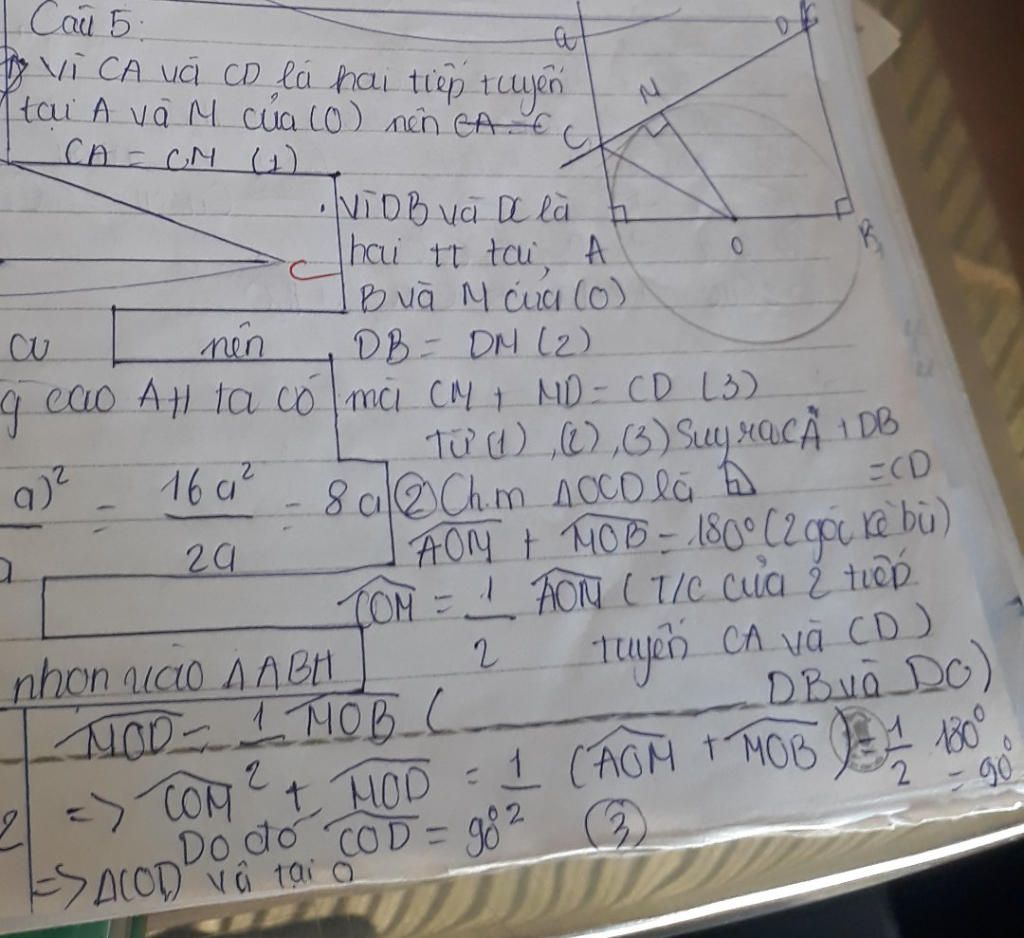 Câu 5:
1) Vì CA và CD là hai tiếp tuyến
tại A và M của (O) nên CA = C
CA = CM (1)
. Vì DB và DC là
hai tt tại, A
B và M của (O)
nên DB = DM (2)
g cao AH ta có
mà CM + MD = CD (3)
Từ (1), (2), (3) Suy ra CA + DB
= CD
a)² = 16a² / 2a = 8a
② C.m ΔOCD là
AOM + MOB = 180° (2 góc kề bù)
COM = 1/2 AOM (T/C của 2 tiếp
tuyến CA và CD)
nhọn vào ΔABH
MOD = 1/2 MOB ( DB và DC)
=> COM + MOD = 1/2 (AOM + MOB) = 1/2 180°
= 90°
Do đó COD = 90°
③
=> ΔCOD vô tại O
a
D
M
C
O
B
C
2